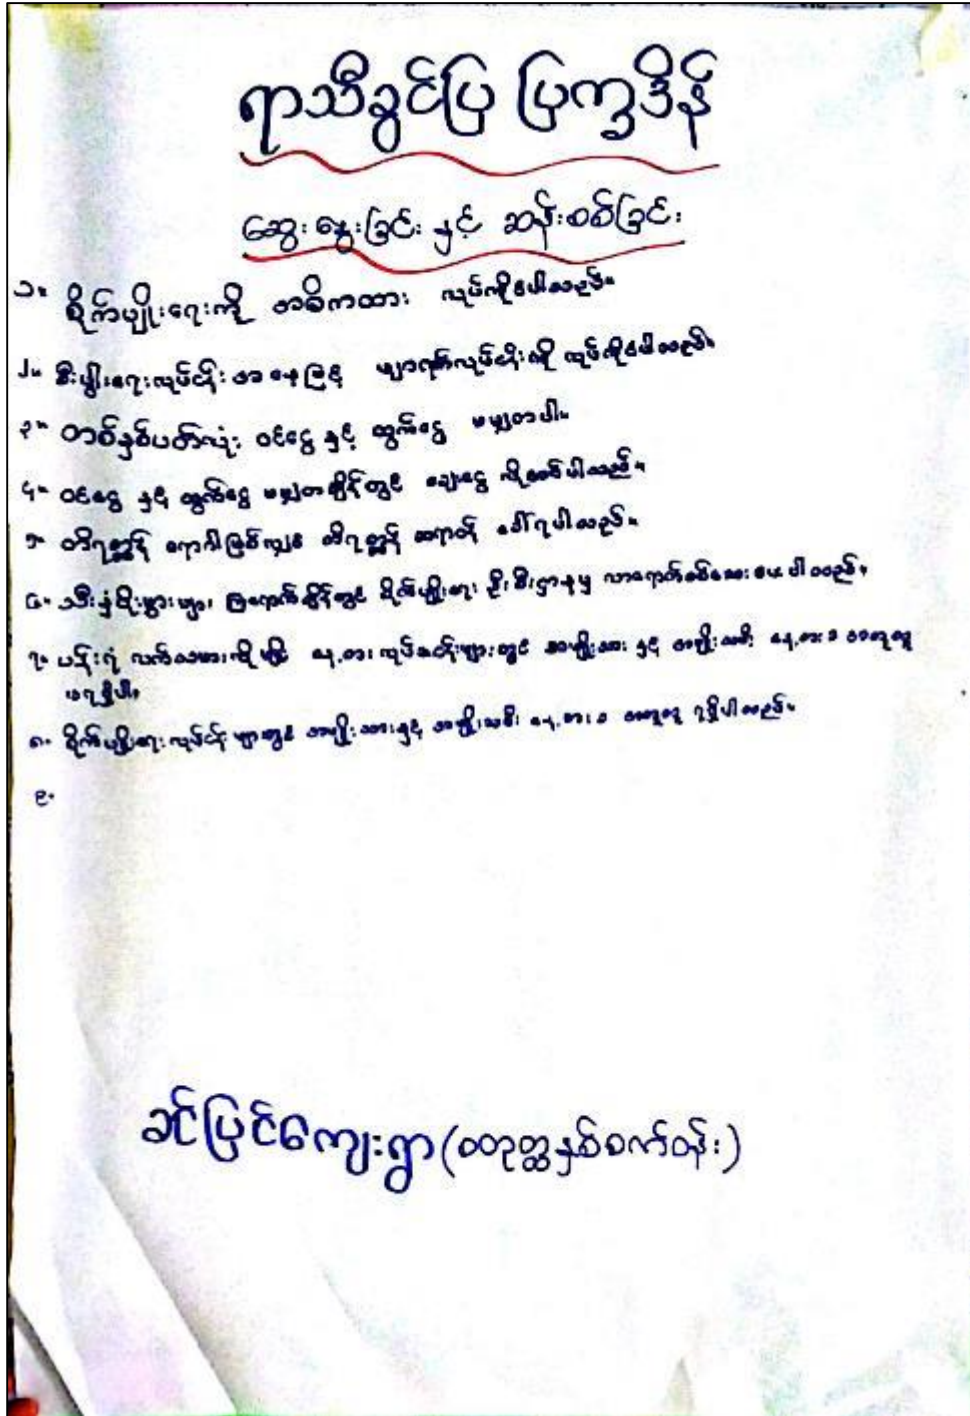 ရာသီခွင်ပြ ပြက္ခဒိန်
ဆွေးနွေးခြင်း နှင့် ဆန်းစစ်ခြင်း
၁။ စိုက်ပျိုးရေးကို အဓိကထား လုပ်ကိုင်ပါသည်။
၂။ စီးပွါးရေးလုပ်ငန်း အနေဖြင့် ဖျာရက်လုပ်ငန်းကို လုပ်ကိုင်ပါသည်။
၃။ တစ်နှစ်ပတ်လုံး ဝင်ငွေ နှင့် ထွက်ငွေ မမျှတပါ။
၄။ ဝင်ငွေ နှင့် ထွက်ငွေ မမျှတချိန်တွင် ချေးငွေ လိုအပ်ပါသည်။
၅။ တိရစ္ဆာန် ရောဂါဖြစ်လျှင် တိရစ္ဆာန် ဆရာဝန် ခေါ်ရပါသည်။
၆။ သီးနှံပိုးမွှားများ ကျရောက်ချိန်တွင် စိုက်ပျိုးရေး ဦးစီးဌာနမှ လာရောက်စစ်ဆေးပေးပါသည်။
၇။ ပန်းရံ လက်သမားကဲ့သို့ နေ့စားလုပ်ငန်းများတွင် အမျိုးသား နှင့် အမျိုးသမီး နေ့စားခ အတူတူ
မရရှိပါ။
၈။ စိုက်ပျိုးရေးလုပ်ငန်းများတွင် အမျိုးသားနှင့် အမျိုးသမီး နေ့စားခ အတူတူ ရရှိပါသည်။
၉။
ခင်ပြင်ကျေးရွာ (စတုတ္ထနှစ်စက်ဝန်း)